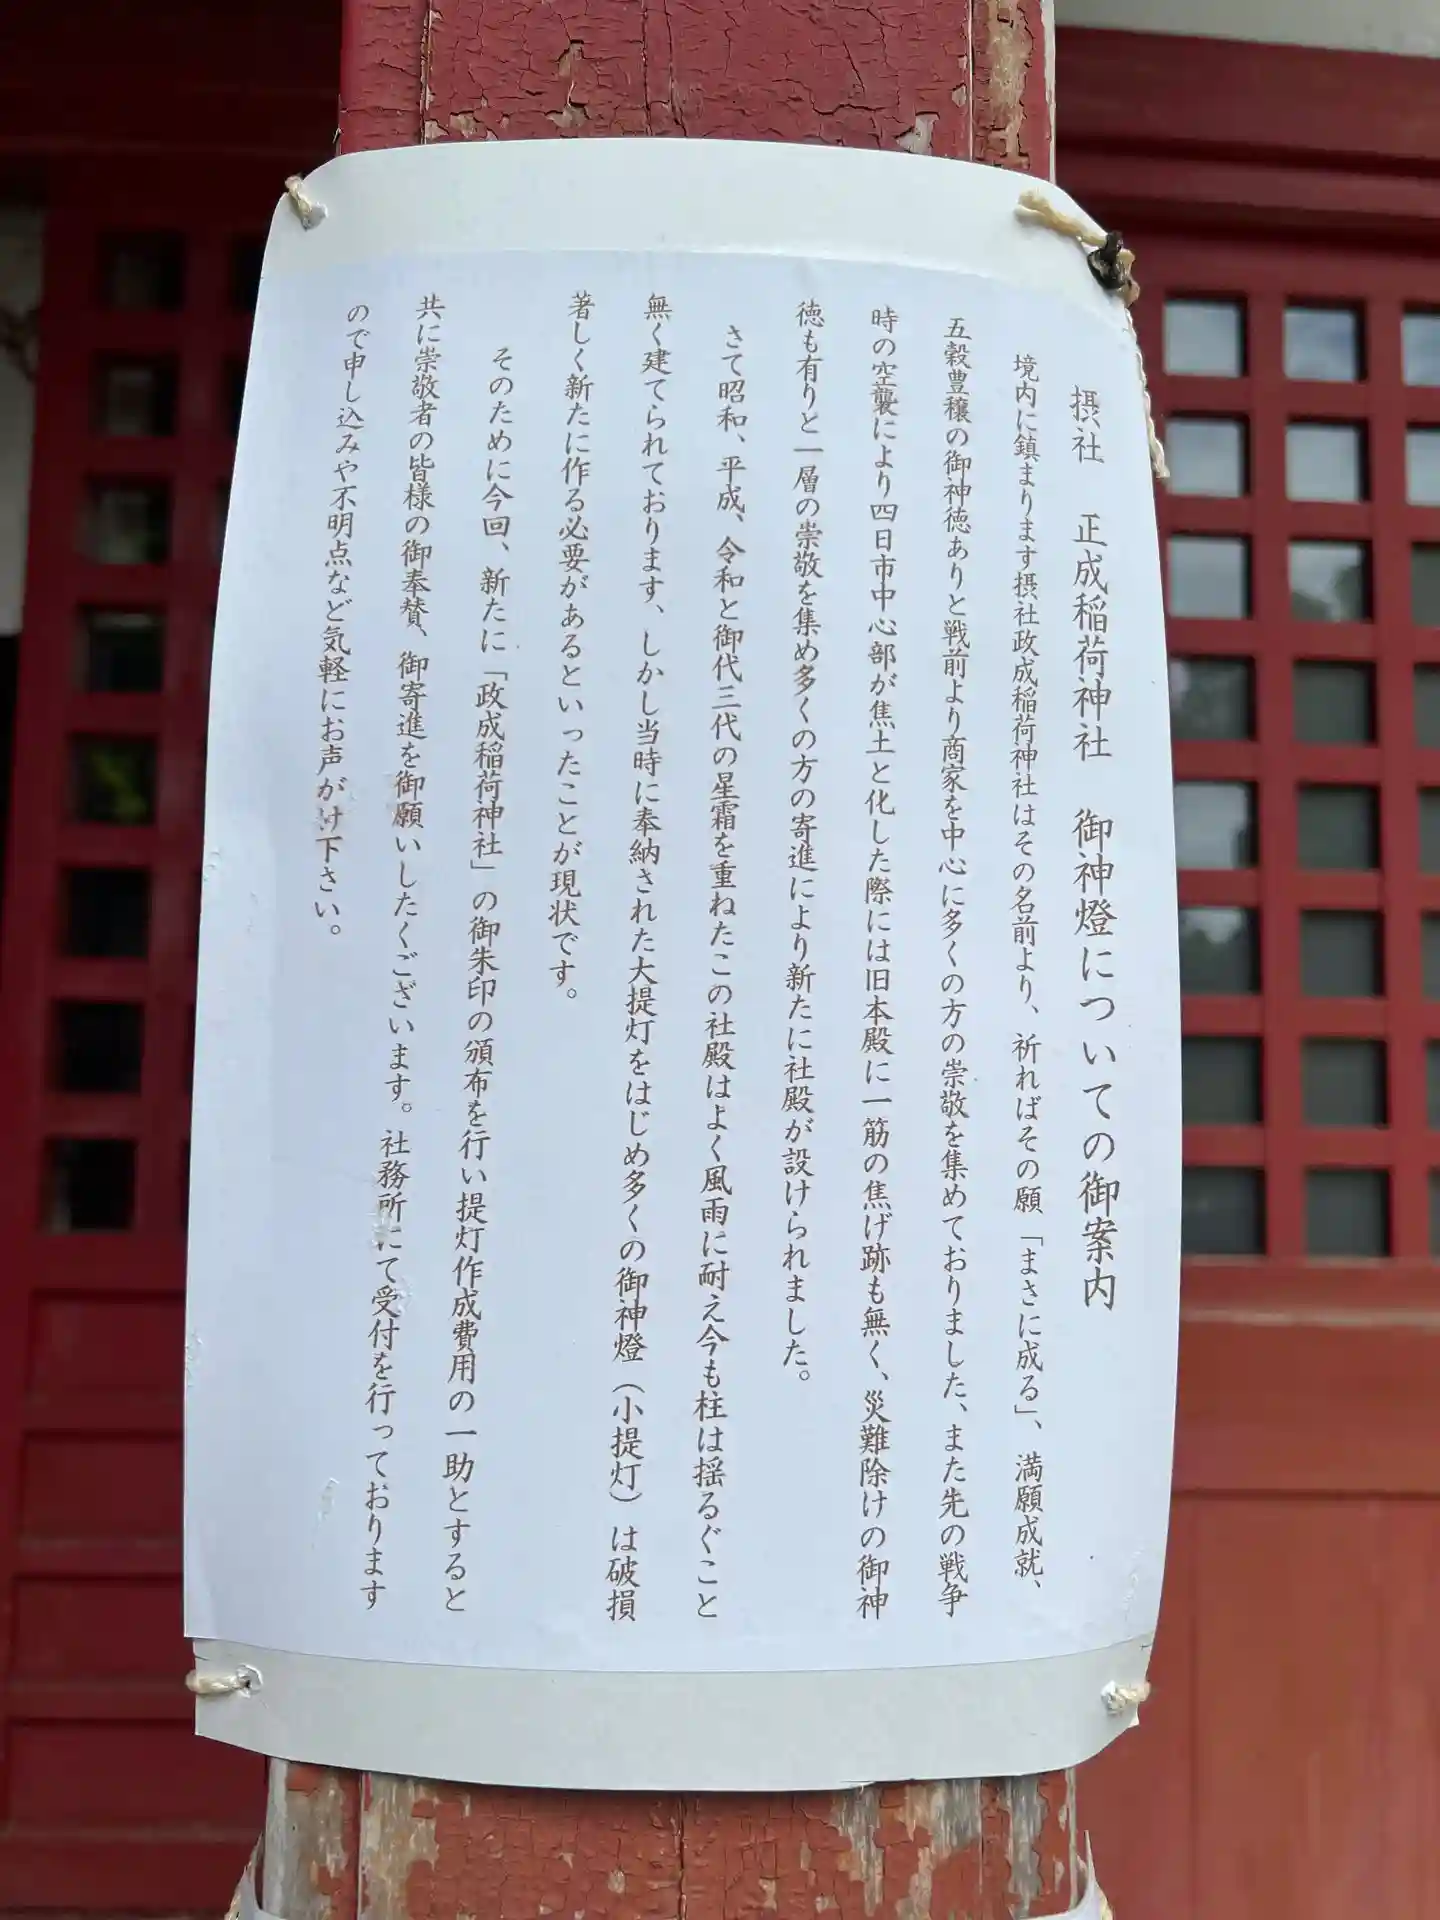 摂社　正成稲荷神社　御神燈についての御案内
境内に鎮まります摂社政成稲荷神社はその名前より、祈ればその願「まさに成る」、満願成就、
五穀豊穣の御神徳ありと戦前より商家を中心に多くの方の崇敬を集めておりました、また先の戦争
時の空襲により四日市中心部が焦土と化した際には旧本殿に一筋の焦げ跡も無く、災難除けの御神
徳も有りと一層の崇敬を集め多くの方の寄進により新たに社殿が設けられました。
さて昭和、平成、令和と御代三代の星霜を重ねたこの社殿はよく風雨に耐え今も柱は揺るぐこと
無く建てられております、しかし当時に奉納された大提灯をはじめ多くの御神燈（小提灯）は破損
著しく新たに作る必要があるといったことが現状です。
そのために今回、新たに「政成稲荷神社」の御朱印の頒布を行い提灯作成費用の一助とすると
共に崇敬者の皆様の御奉賛、御寄進を御願いしたくございます。社務所にて受付を行っております
ので申し込みや不明点など気軽にお声がけ下さい。